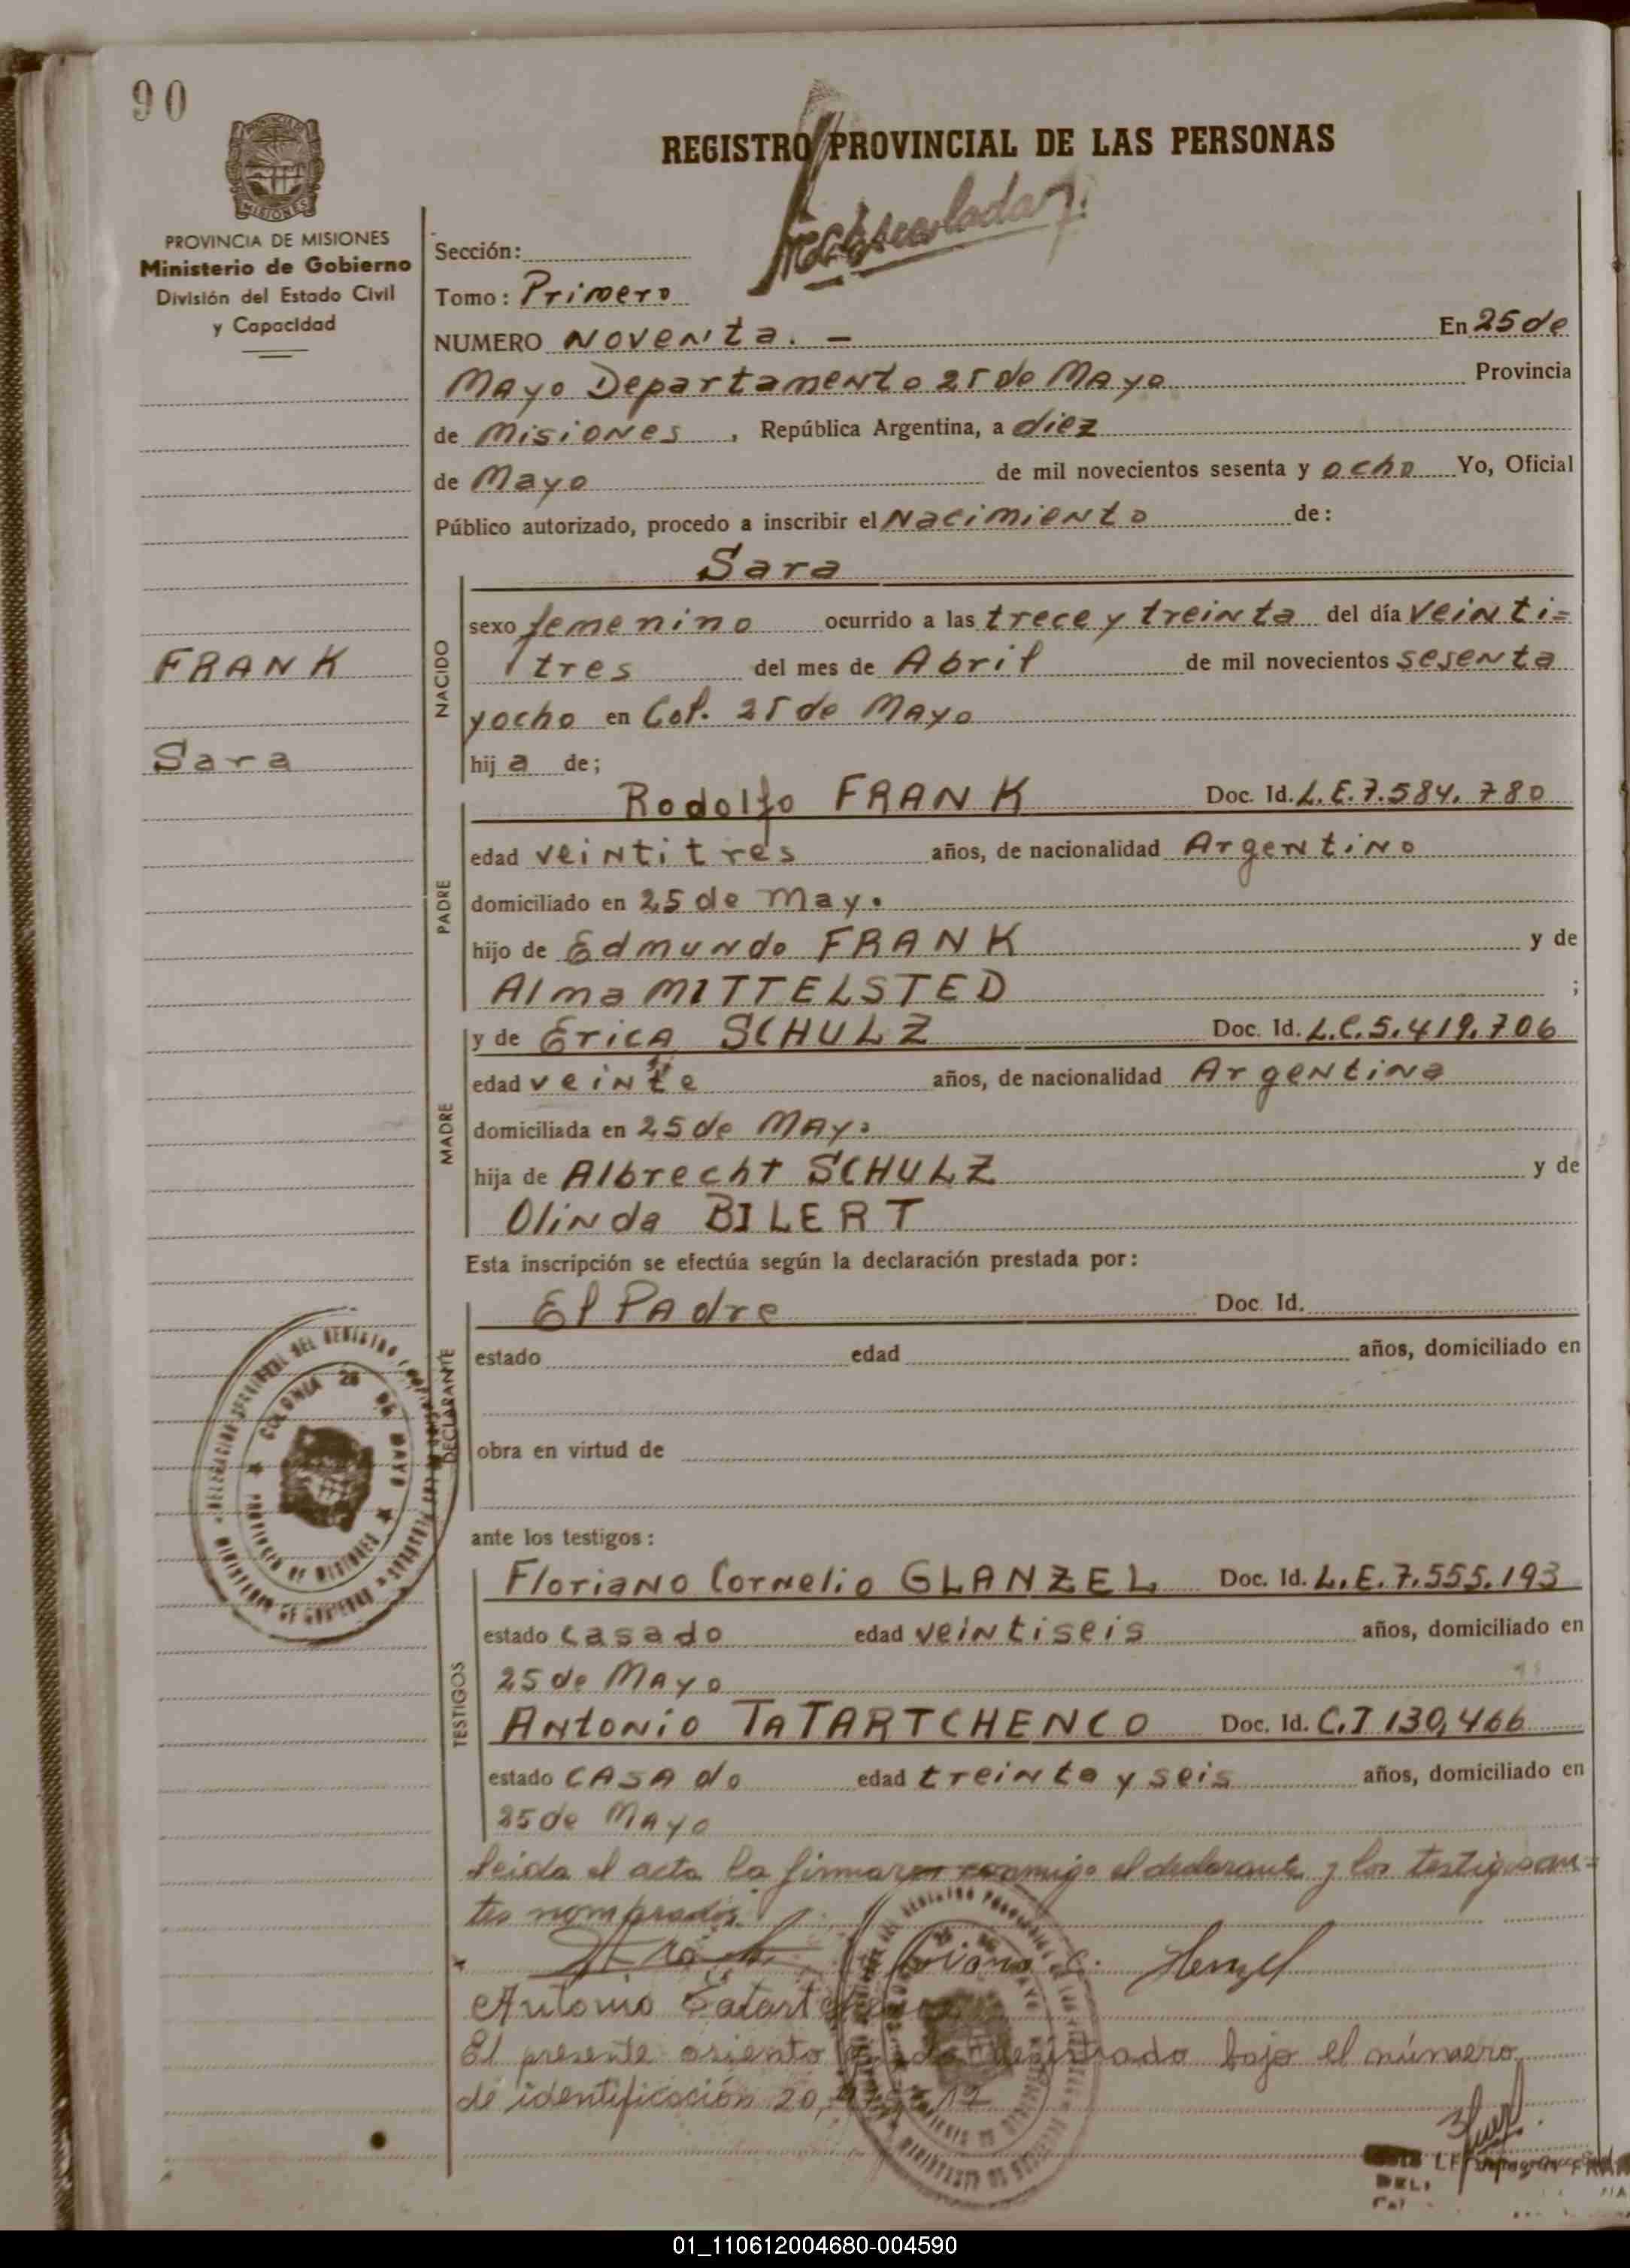 90
REGISTRO PROVINCIAL DE LAS PERSONAS
MISIONES
PROVINCIA DE MISIONES
Ministerio de Gobierno
División del Estado Civil
y Capacidad
Sección:
Tomo: Primero
NUMERO Noventa. - En 25 de
Mayo Departamento 25 de Mayo Provincia
de Misiones, República Argentina, a diez
de Mayo de mil novecientos sesenta y ocho Yo, Oficial
Público autorizado, procedo a inscribir el Nacimiento de:
Sara
NACIDO
sexo femenino ocurrido a las trece y treinta del día veinti=
tres del mes de Abril de mil novecientos sesenta
y ocho en Col. 25 de Mayo
hija de;
FRANK
Sara
PADRE
Rodolfo FRANK Doc. Id. L.E.7.584.780
edad veintitres años, de nacionalidad Argentino
domiciliado en 25 de Mayo
hijo de Edmundo FRANK y de
Alma MITTELSTED ;
MADRE
y de Erica SCHULZ Doc. Id. L.C.5.419.706
edad veinte años, de nacionalidad Argentina
domiciliada en 25 de Mayo
hija de Albrecht SCHULZ y de
Olinda BILERT
Esta inscripción se efectúa según la declaración prestada por:
DECLARANTE
El Padre Doc. Id.
estado edad años, domiciliado en
obra en virtud de
COLONIA 25 DE MAYO
PROVINCIA DE MISIONES
MINISTERIO DE GOBIERNO
ante los testigos:
TESTIGOS
Floriano Cornelio GLANZEL Doc. Id. L.E.7.555.193
estado casado edad veintiseis años, domiciliado en
25 de Mayo
Antonio TATARTCHENCO Doc. Id. C.I 130,466
estado casado edad treinta y seis años, domiciliado en
25 de Mayo
Leida el acta la firmaron conmigo el declarante y los testigos an=
tes nombrados.
Antonio Tatartchenco
El presente asiento queda registrado bajo el número
de identificación 20,
01_110612004680-004590